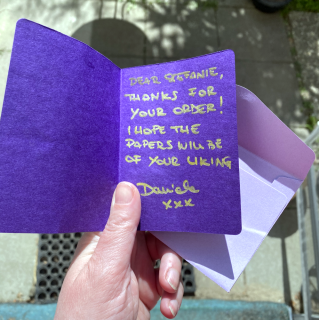 DEAR STEFANIE,
THANKS FOR
YOUR ORDER!
I HOPE THE
PAPERS WILL BE
OF YOUR LIKING
Daniela
xxx